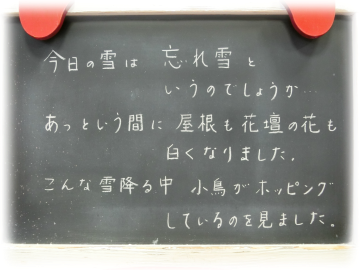 今日の雪は 忘れ雪と
いうのでしょうか…
あっという間に 屋根も花壇の花も
白くなりました.
こんな雪降る中 小鳥がホッピング
しているのを見ました。